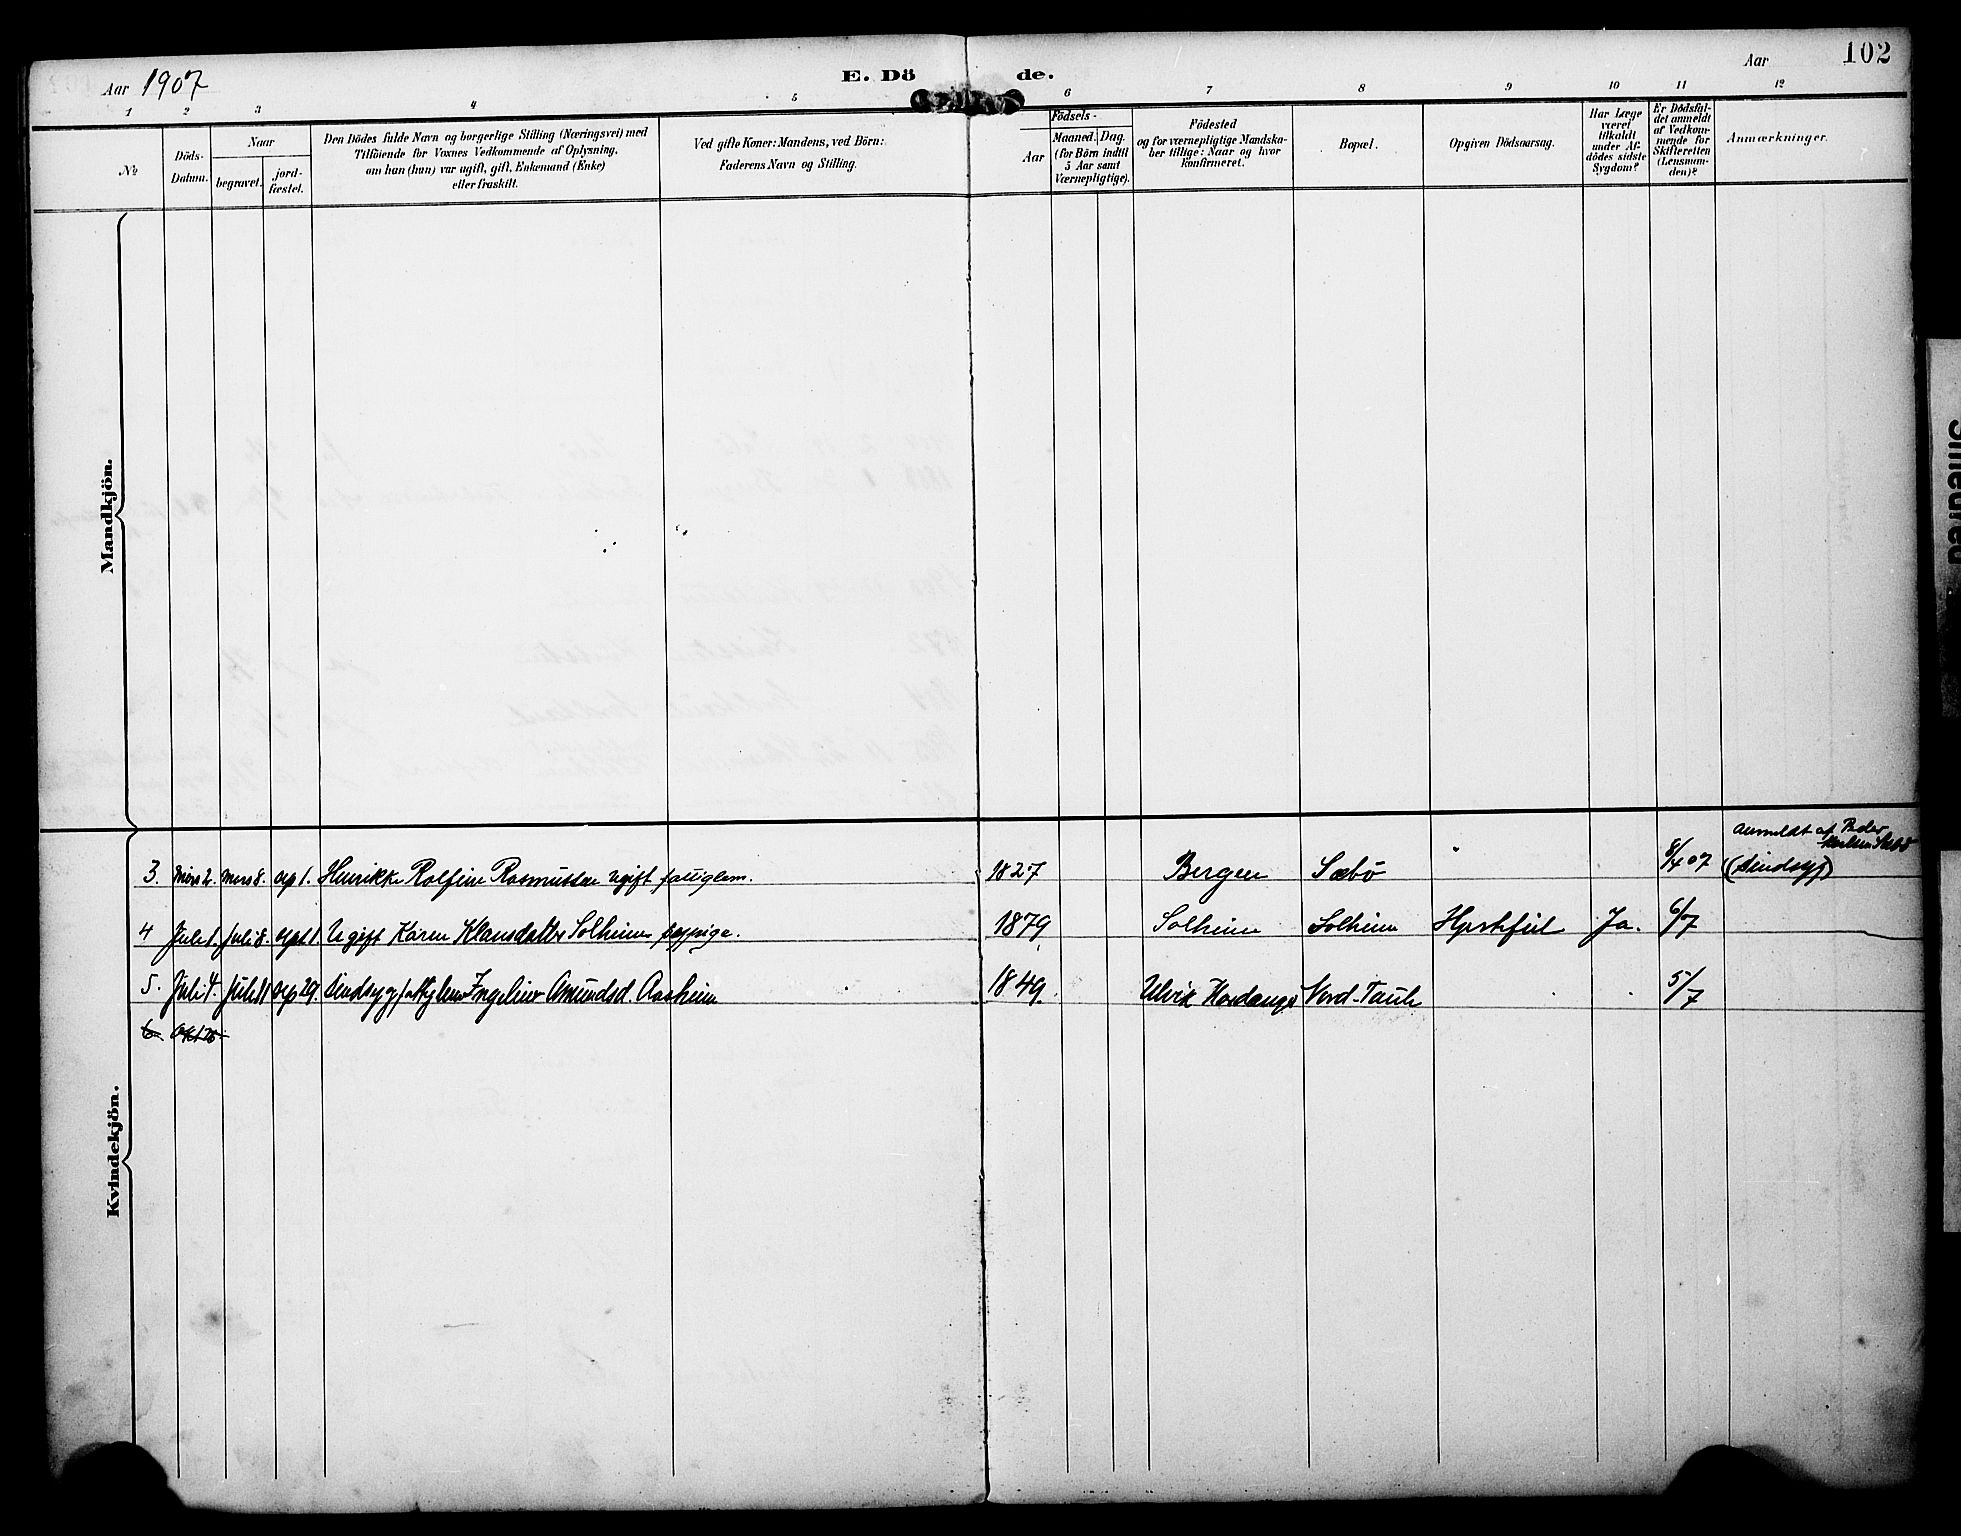 Aar 1907
E. Döde.
Aar
102
1 2 3 4 5 6 7 8 9 10 11 12
No
Döds-Datum.
Naar
begravet.
jord-fæstet.
Den Dödes fulde Navn og borgerlige Stilling (Næringsvei) med
Tilföiende for Voxnes Vedkommende af Oplysning,
om han (hun) var ugift, gift, Enkemand (Enke)
eller fraskilt.
Ved gifte Koner: Mandens, ved Börn:
Faderens Navn og Stilling.
Födsels-
Aar
Maaned. Dag.
(for Börn indtil
5 Aar samt
Værnepligtige).
Födested
og for værnepligtige Mandska-
ber tillige: Naar og hvor
konfirmeret.
Bopæl.
Opgiven Dödsaarsag.
Har Læge
været
tilkaldt
under Af-
dödes sidste
Sygdom?
Er Dödsfal-
det anmeldt
af Vedkom-
mende for
Skifteretten
(Lensman-
den)?
Anmærkninger.
Mandkjön.
Kvindekjön.
anmeldt af Peder
3. Mars 2. Mars 8. sep 1. Henrikke Rolfine Rasmussen ugift fattiglem. 1827 Bergen Sæbö 8/4 07 (sindsyg)
4 Juli 1. Juli 8. sept 1. Ugift Karen Klausdatter Solheim 1879 Solheim Solheim Hjertefeil Ja. 6/7
5. Juli 4. Juli 11 sep 29. Sindsyg Ingelin Amundsd. Aasheim 1849. Ulvik Hardanger Nord-Taule 5/7
6. Okt
Smedfed